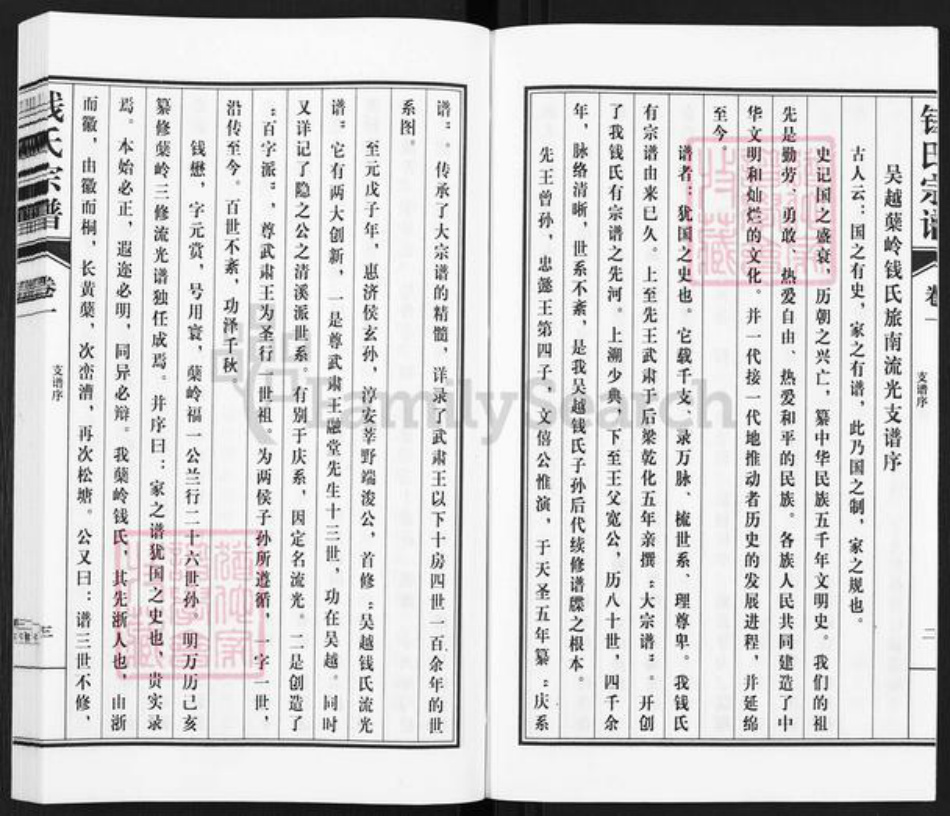 钱氏宗谱
卷一
支谱序
二
吴越蘖岭钱氏旅南流光支谱序
古人云：国之有史，家之有谱，此乃国之制，家之规也。
史记国之盛衰，历朝之兴亡，纂中华民族五千年文明史。我们的祖
先是勤劳、勇敢、热爱自由、热爱和平的民族。各族人民共同建造了中
华文明和灿烂的文化。并一代接一代地推动者历史的发展进程，并延绵
至今。
谱者：犹国之史也。它载千支、录万脉、梳世系、理尊卑。我钱氏
有宗谱由来已久。上至先王武肃于后梁乾化五年亲撰“大宗谱”。开创
了我钱氏有宗谱之先河。上溯少典，下至王父宽公，历八十世，四千余
年，脉络清晰，世系不紊，是我吴越钱氏子孙后代续修谱牒之根本。
先王曾孙，忠懿王第四子，文僖公惟演，于天圣五年纂“庆系
谱”。传承了大宗谱的精髓，详录了武肃王以下十房四世一百余年的世
系图。
至元戊子年，惠济侯玄孙，淳安莘野端浚公，首修“吴越钱氏流光
谱”它有两大创新，一是尊武肃王融堂先生十三世，功在吴越。同时
又详记了隐之公之清溪派世系。有别于庆系，因定名流光。二是创造了
“百字派”，尊武肃王为圣行一世祖。为两侯子孙所遵循，一字一世，
沿传至今。百世不紊，功泽千秋
钱懋，字元赏，号用寰，蘖岭福一公兰行二十六世孙。明万历己亥
纂修蘖岭三修流光谱独任成焉。并序曰：家之谱犹国之史也，贵实录
焉。本始必正，遐迩必明，同异必辩。我蘖岭钱氏，其先浙人也，由浙
而徽，由徽而桐，长黄蘖，次峦漕，再次松塘。公又曰：谱三世不修，
钱氏宗谱
卷一
支谱序
三
FamilySearch